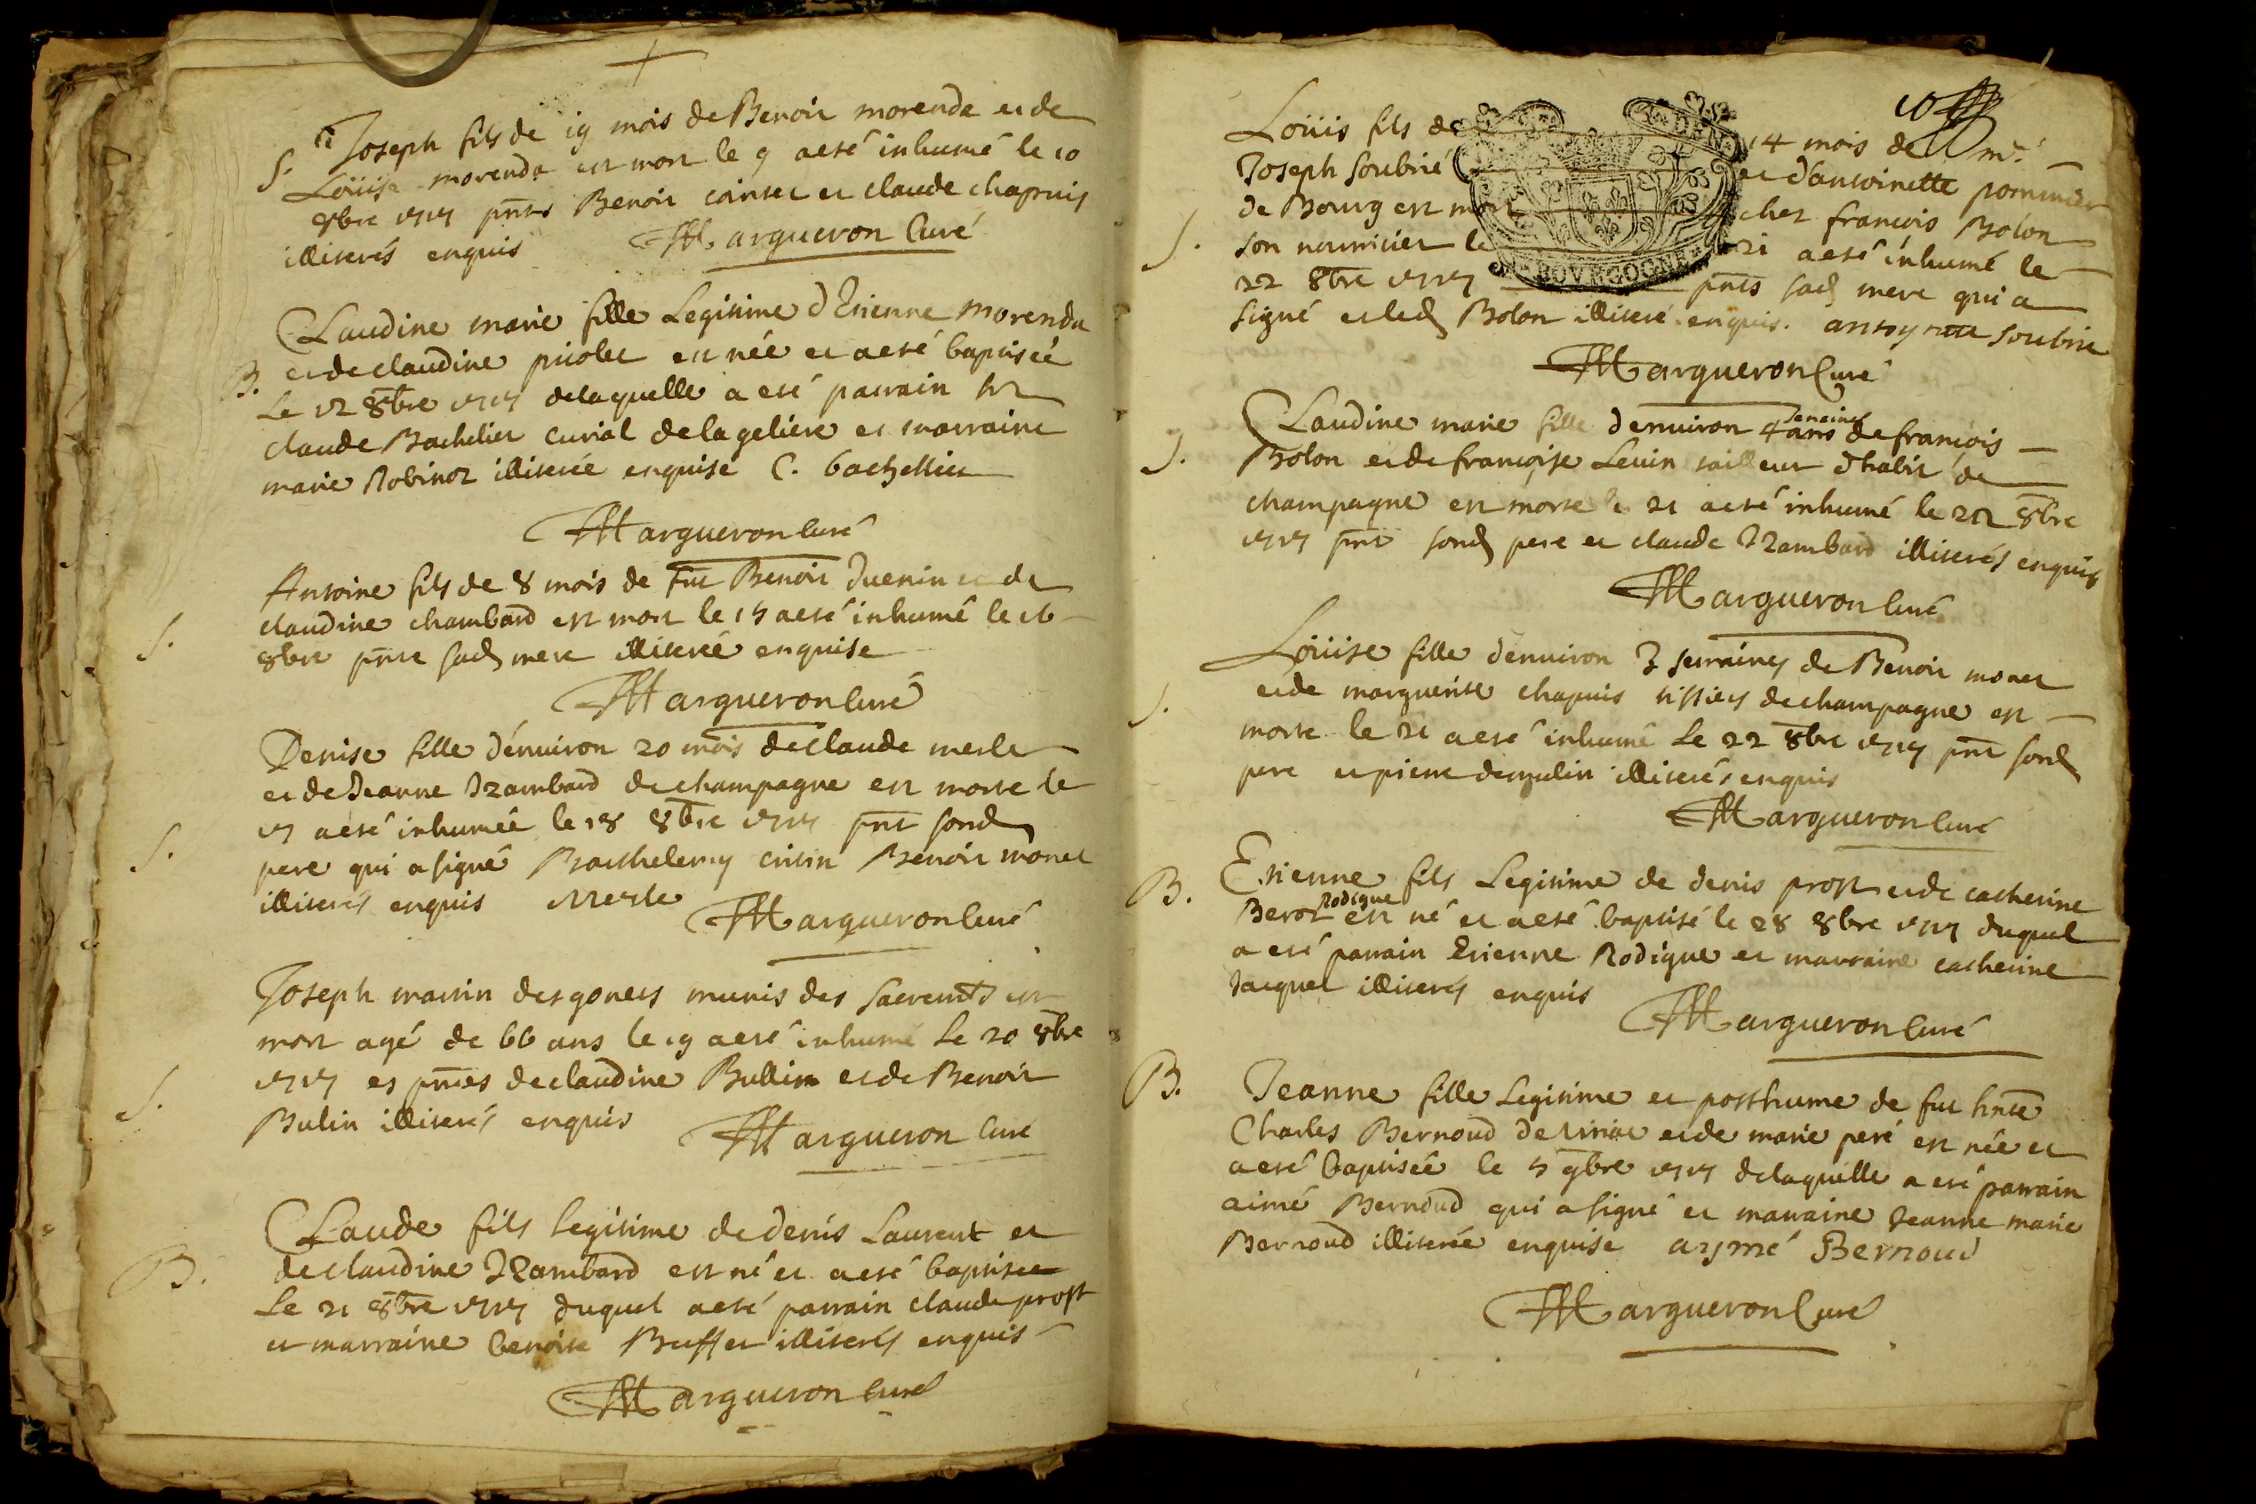 Joseph fils de 19 mois de Benoit morenda et de
S.
Loüise morenda est mort le 9 a eté inhumé le 10
8bre 1715 pnts Benoit et claude chapuis
illiterés enquis Margueron Curé
Claudine marie fille Legitime d'Etienne morenda
B. et de claudine picolet est née et a eté baptisée
Le 12 8bre 1715 de laquelle a eté parrain
claude Bachelier curial de la geliere et marraine
marie Robinot illiterée enquise C. bachellier
Margueron Curé
Antoine fils de 8 mois de fut Benoit et de
claudine chambard est mort le 15 a eté inhumé le 16
S.
8bre pnte sad mere illiterée enquise
Margueron Curé
Denise fille d'enuiron 20 mois de Claude merle
et de Jeanne de champagne est morte le
17 a eté inhumée le 18 8bre 1715 pnt sond
S.
pere qui a signé Barthelemy Benoit monet
illiterés enquis Merle
Margueron Curé
Joseph martin des gonets munis des sacremts est
mort agé de 66 ans le 19 a eté inhumé Le 20 8bre
1715 es pnces de claudine Bullin et de Benoit
S.
Bulin illiterés enquis Margueron Curé
Claude fils legitime de denis Laurent et
B. de claudine est né et a eté baptisee
Le 21 8bre 1715 duquel a eté parrain claude prost
et marraine benoite Buffet illiterés enquis
Margueron Curé
10
Loüis fils de 14 mois de mr
Joseph soubrié et d'antoinette pommier
de Bourg est mort chez francois Bolon
S. son nourricier le 21 a eté inhumé le
22 8bre 1715 pnts sad mere qui a
signé et led Bolon illiteré enquis. soubrié
BOVRGOGNE
Margueron Curé
semaines
Claudine marie fille d'enuiron 4 ans de francois
S. Bolon et de françoise Leuin tailleur d'habit de
champagne est morte le 21 a eté inhumé le 22 8bre
1715 pnt sond pere et claude illiterés enquis
Margueron Curé
Loüise fille d'enuiron 3 semaines de Benoit monet
et de marguerite chapuis tissiers de champagne est
S.
morte le 21 a eté inhumé Le 22 8bre 1715 pnt sond
pere et pierre illiterés enquis
Margueron Curé
B. Etienne fils Legitime de denis prost et de catherine
Rodigue
est né et a eté baptisé le 28 8bre 1715 duquel
a eté parrain Etienne Rodigue et marraine catherine
Jacquet illiterés enquis
Margueron Curé
B. Jeanne fille Legitime et posthume de fut
Charles Bernoud de et de marie peré est née et
a eté baptisée le 5 9bre 1715 de laquelle a eté parrain
aimé Bernoud qui a signé et marraine Jeanne marie
Bernoud illiterée enquise aymé Bernoud
Margueron Curé